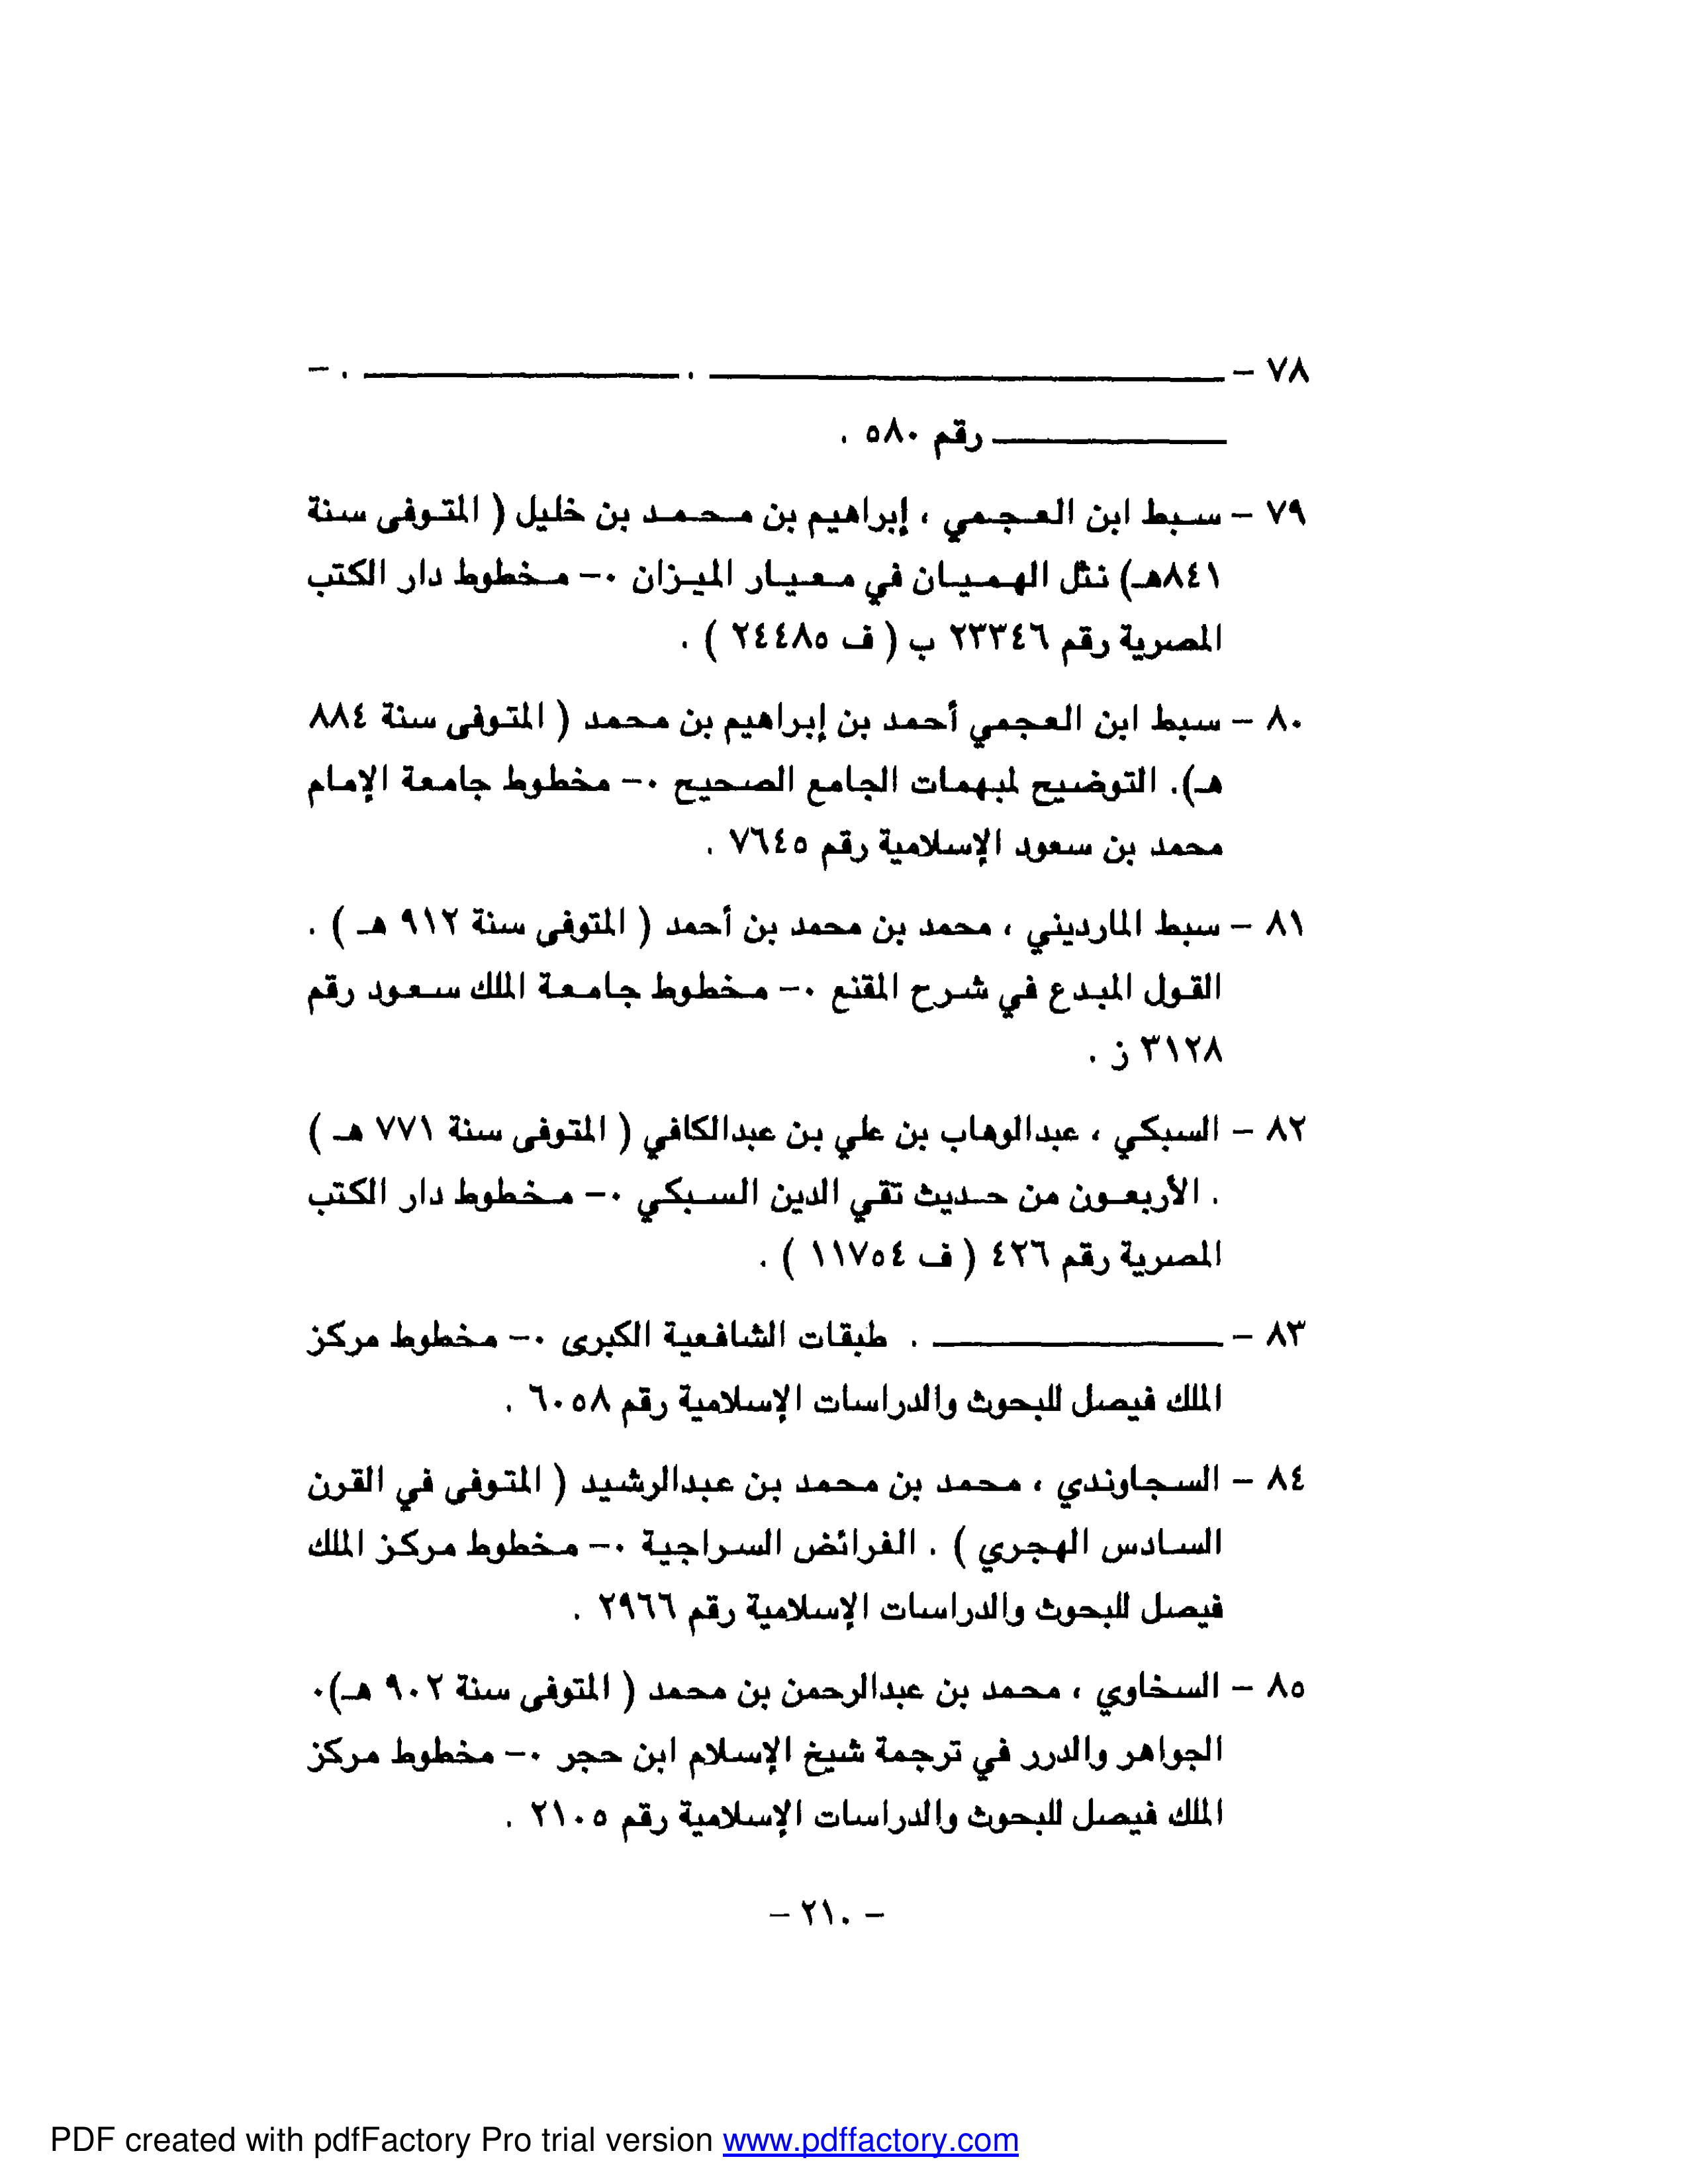 ٧٨ – ــــــــــــــــــــ . ــــــــــــــــــــ . –
ــــــــــــــــــــ رقم ٥٨٠ .
٧٩ – سبط ابن العجمي ، إبراهيم بن محمد بن خليل ( المتوفى سنة
٨٤١هـ) نثل الهميان في معيار الميزان ٠– مخطوط دار الكتب
المصرية رقم ٢٣٣٤٦ ب ( ف ٢٤٤٨٥ ) .
٨٠ – سبط ابن العجمي أحمد بن إبراهيم بن محمد ( المتوفى سنة ٨٨٤
هـ). التوضيح لمبهمات الجامع الصحيح ٠– مخطوط جامعة الإمام
محمد بن سعود الإسلامية رقم ٧٦٤٥ .
٨١ – سبط المارديني ، محمد بن محمد بن أحمد ( المتوفى سنة ٩١٢ هـ ) .
القول المبدع في شرح المقنع ٠– مخطوط جامعة الملك سعود رقم
٣١٢٨ ز .
٨٢ – السبكي ، عبدالوهاب بن علي بن عبدالكافي ( المتوفى سنة ٧٧١ هـ )
. الأربعون من حديث تقي الدين السبكي ٠– مخطوط دار الكتب
المصرية رقم ٤٢٦ ( ف ١١٧٥٤ ) .
٨٣ – ــــــــــــــــــــ . طبقات الشافعية الكبرى ٠– مخطوط مركز
الملك فيصل للبحوث والدراسات الإسلامية رقم ٦٠٥٨ .
٨٤ – السجاوندي ، محمد بن محمد بن عبدالرشيد ( المتوفى في القرن
السادس الهجري ) . الفرائض السراجية ٠– مخطوط مركز الملك
فيصل للبحوث والدراسات الإسلامية رقم ٢٩٦٦ .
٨٥ – السخاوي ، محمد بن عبدالرحمن بن محمد ( المتوفى سنة ٩٠٢ هـ)٠
الجواهر والدرر في ترجمة شيخ الإسلام ابن حجر ٠– مخطوط مركز
الملك فيصل للبحوث والدراسات الإسلامية رقم ٢١٠٥ .
– ٢١٠ –
PDF created with pdfFactory Pro trial version www.pdffactory.com